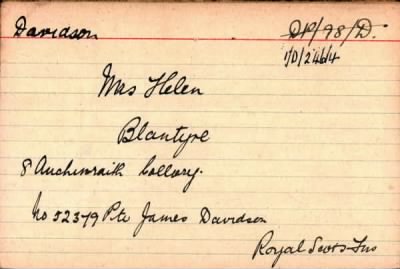 Davidson
DP/98/D.
1/D/2464
Mrs Helen
Blantyre
8 Auchinraith Collery.
No 52379 Pte James Davidson
Royal Scots Fus